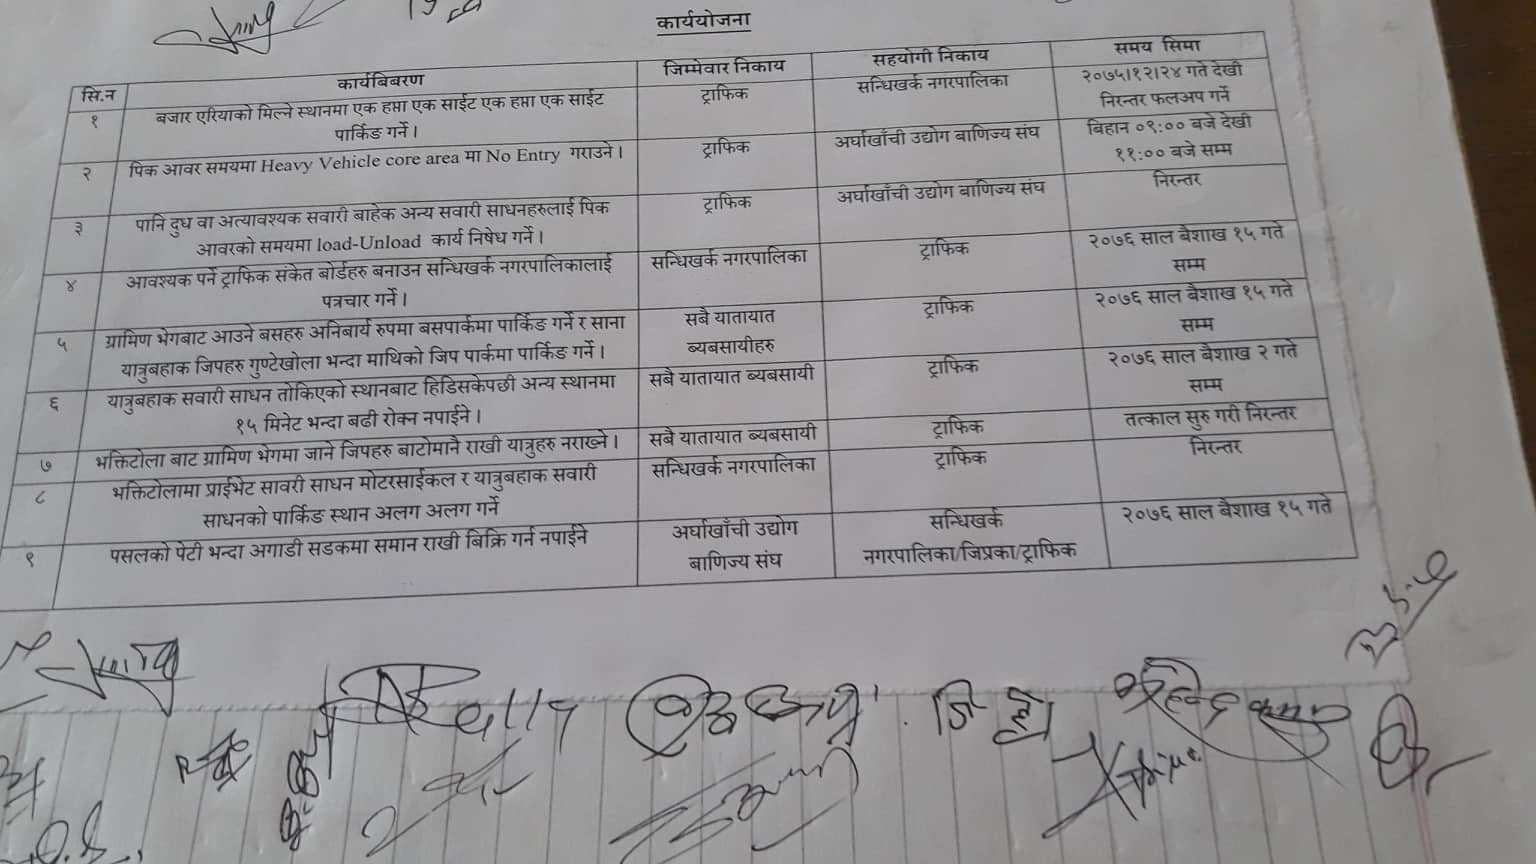 कार्ययोजना
सि.न कार्यबिबरण जिम्मेवार निकाय सहयोगी निकाय समय सिमा
१ बजार एरियाको मिल्ने स्थानमा एक हप्ता एक साईट एक हप्ता एक साईट ट्राफिक सन्धिखर्क नगरपालिका २०७५।१२।२४ गते देखी
पार्किङ गर्ने । निरन्तर फलअप गर्ने
२ पिक आवर समयमा Heavy Vehicle core area मा No Entry गराउने । ट्राफिक अर्घाखाँची उद्योग बाणिज्य संघ बिहान ०९:०० बजे देखी
११:०० बजे सम्म
३ पानि दुध वा अत्यावश्यक सवारी बाहेक अन्य सवारी साधनहरुलाई पिक ट्राफिक अर्घाखाँची उद्योग बाणिज्य संघ निरन्तर
आवरको समयमा load-Unload कार्य निषेध गर्ने ।
४ आवश्यक पर्ने ट्राफिक संकेत बोर्डहरु बनाउन सन्धिखर्क नगरपालिकालाई सन्धिखर्क नगरपालिका ट्राफिक २०७६ साल बैशाख १५ गते
पत्रचार गर्ने । सम्म
५ ग्रामिण भेगबाट आउने बसहरु अनिबार्य रुपमा बसपार्कमा पार्किङ गर्ने र साना सबै यातायात ट्राफिक २०७६ साल बैशाख १५ गते
यात्रुबहाक जिपहरु गुण्टेखोला भन्दा माथिको जिप पार्कमा पार्किङ गर्ने । ब्यबसायीहरु सम्म
६ यात्रुबहाक सवारी साधन तोकिएको स्थानबाट हिडिसकेपछी अन्य स्थानमा सबै यातायात ब्यबसायी ट्राफिक २०७६ साल बैशाख २ गते
१५ मिनेट भन्दा बढी रोक्न नपाईने । सम्म
७ भक्तिटोला बाट ग्रामिण भेगमा जाने जिपहरु बाटोमानै राखी यात्रुहरु नराख्ने । सबै यातायात ब्यबसायी ट्राफिक तत्काल सुरु गरी निरन्तर
८ भक्तिटोलामा प्राईभेट सावरी साधन मोटरसाईकल र यात्रुबहाक सवारी सन्धिखर्क नगरपालिका ट्राफिक निरन्तर
साधनको पार्किङ स्थान अलग अलग गर्ने
९ पसलको पेटी भन्दा अगाडी सडकमा समान राखी बिक्रि गर्न नपाईने अर्घाखाँची उद्योग सन्धिखर्क २०७६ साल बैशाख १५ गते
बाणिज्य संघ नगरपालिका/जिप्रका/ट्राफिक